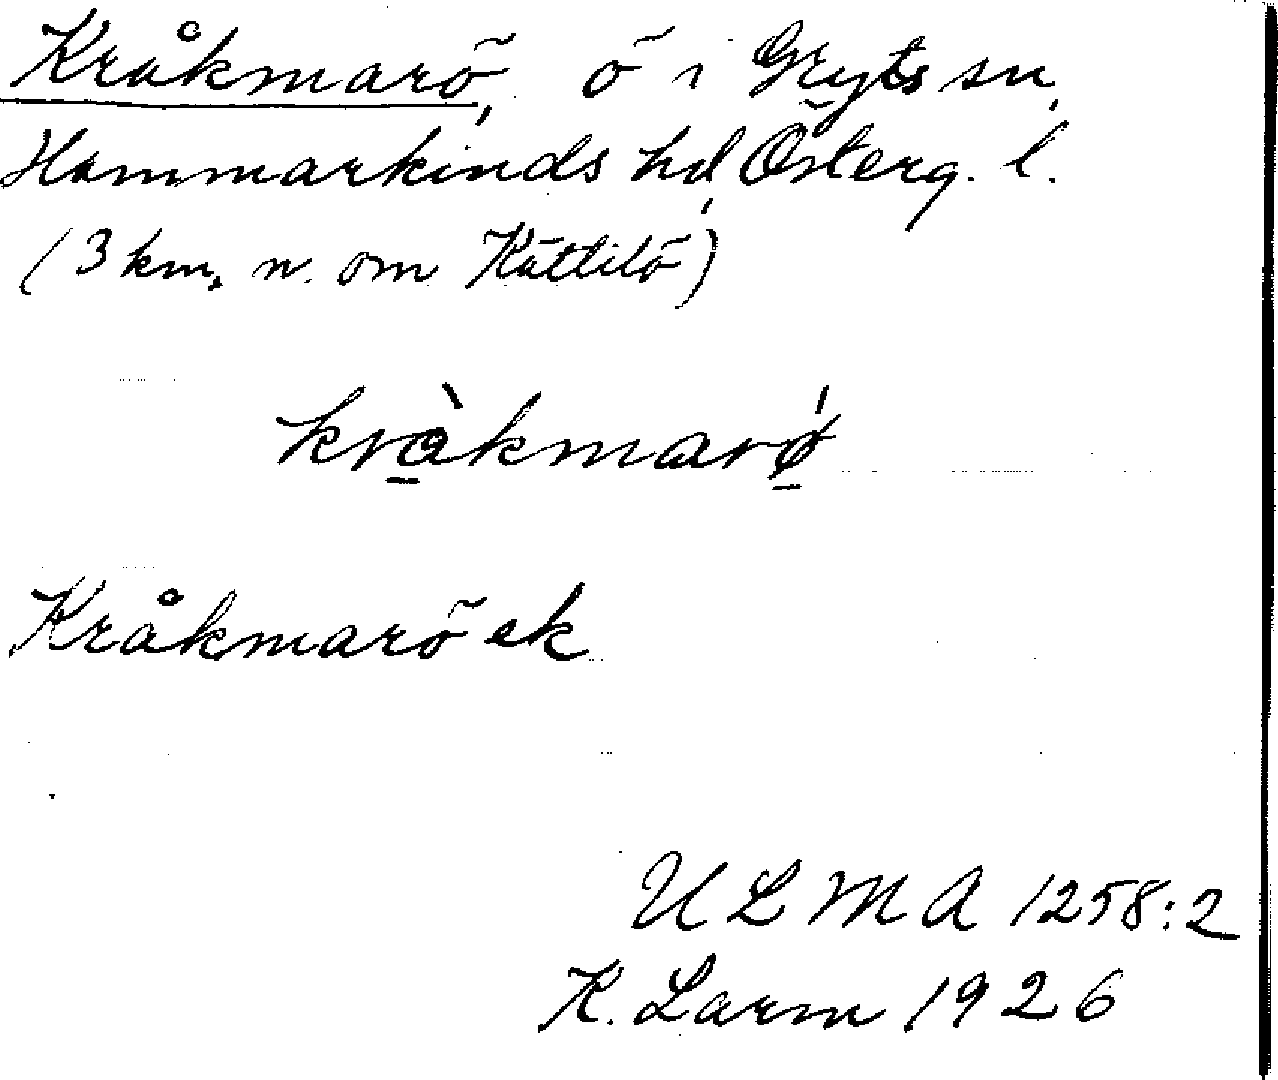 Kråkmarö, ö i Gryts sn,
Hammarkinds hd, Österg. l.
(3 km. n. om Kättilö)
kràkmarǿ
Kråkmarö ek
ULMA 1258:2
K. Larm 1926